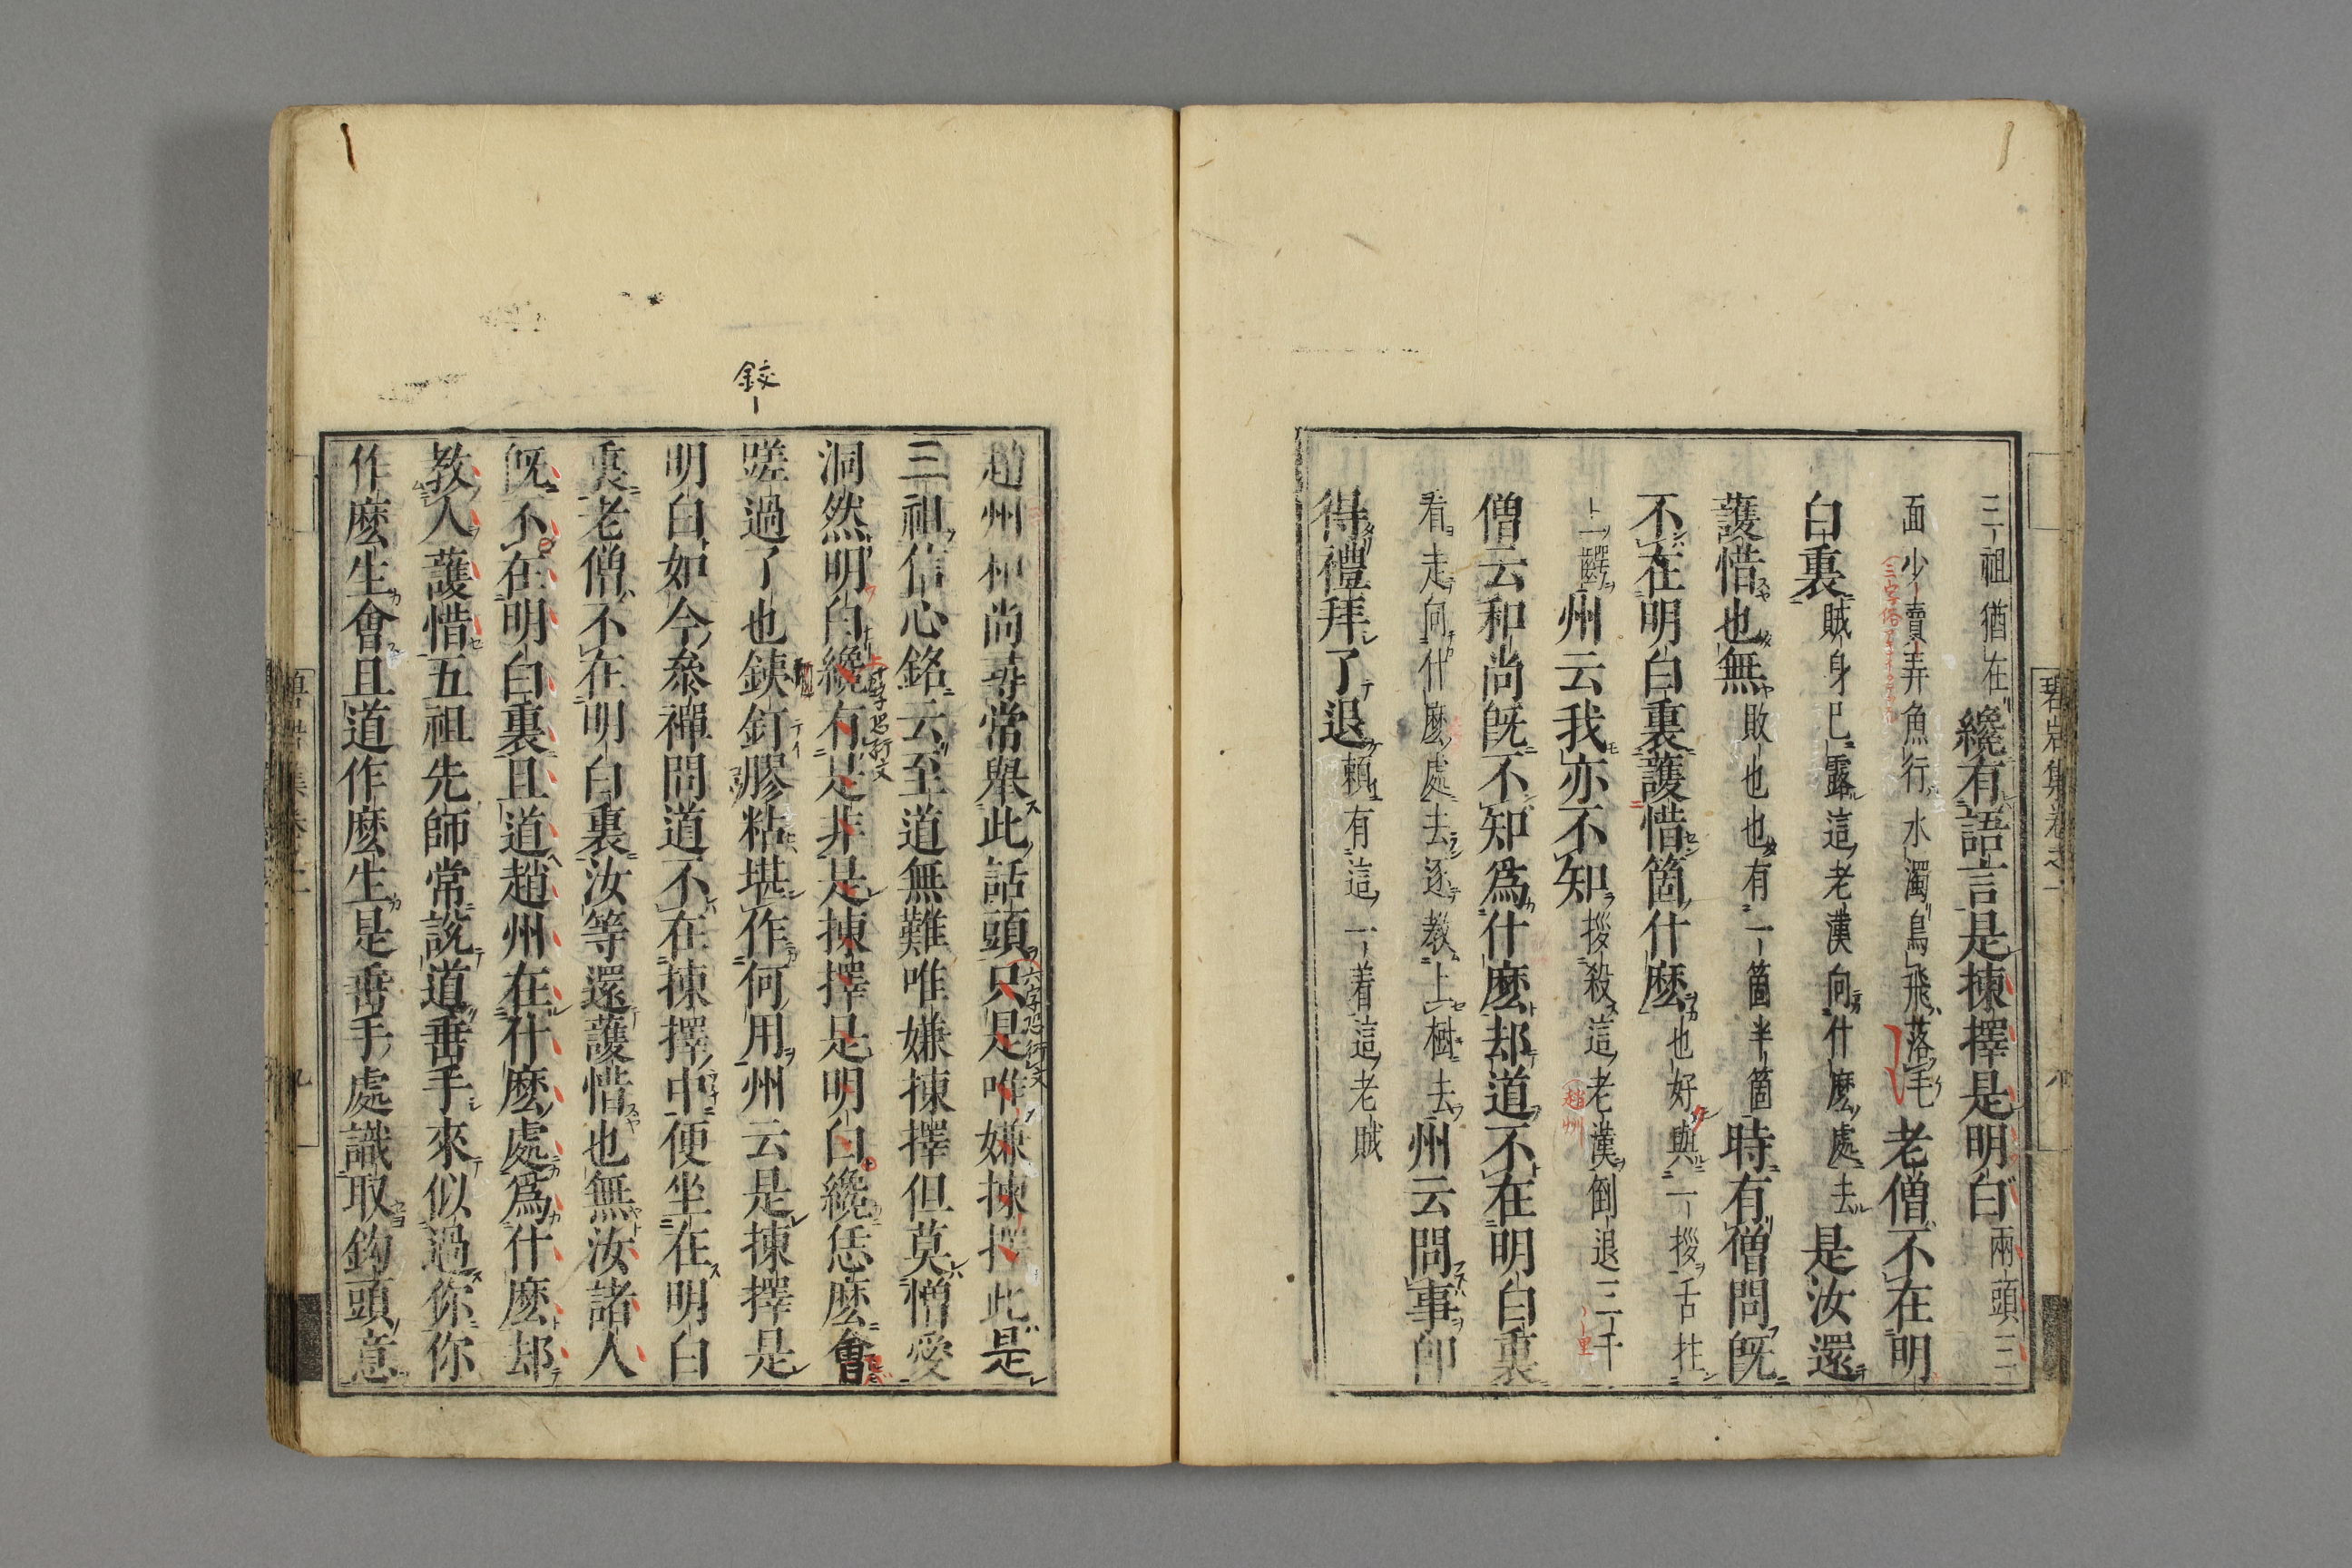 三祖猶在纔有語言是揀擇是明白兩頭三
面少賣弄魚行水濁鳥飛落毛老僧不在明
白裏賊身已露這老漢向什麼處去是汝還
護惜也無敗也也有一箇半箇時有僧問既
不在明白裏護惜箇什麼也好與一拶舌拄
上齶州云我亦不知拶殺這老漢倒退三千
僧云和尚既不知爲什麼却道不在明白裏
看走向什麼處去逐教上樹去州云問事卽
得禮拜了退頼有這一着這老賊
碧岩集卷之一
八
趙州和尚尋常舉此話頭只是唯嫌揀擇此是
三祖信心銘云至道無難唯嫌揀擇但莫憎愛
洞然明白纔有是非是揀擇是明白纔恁麽會
蹉過了也鉄釘膠粘堪作何用州云是揀擇是
明白如今叅禪問道不在揀擇中便坐在明白
裏老僧不在明白裏汝等還護惜也無汝諸人
既不在明白裏且道趙州在什麼處爲什麼却
教人護惜五祖先師常說道垂手來似過你你
作麽生會且道作麽生是垂手處識取鈎頭意
鉸
九